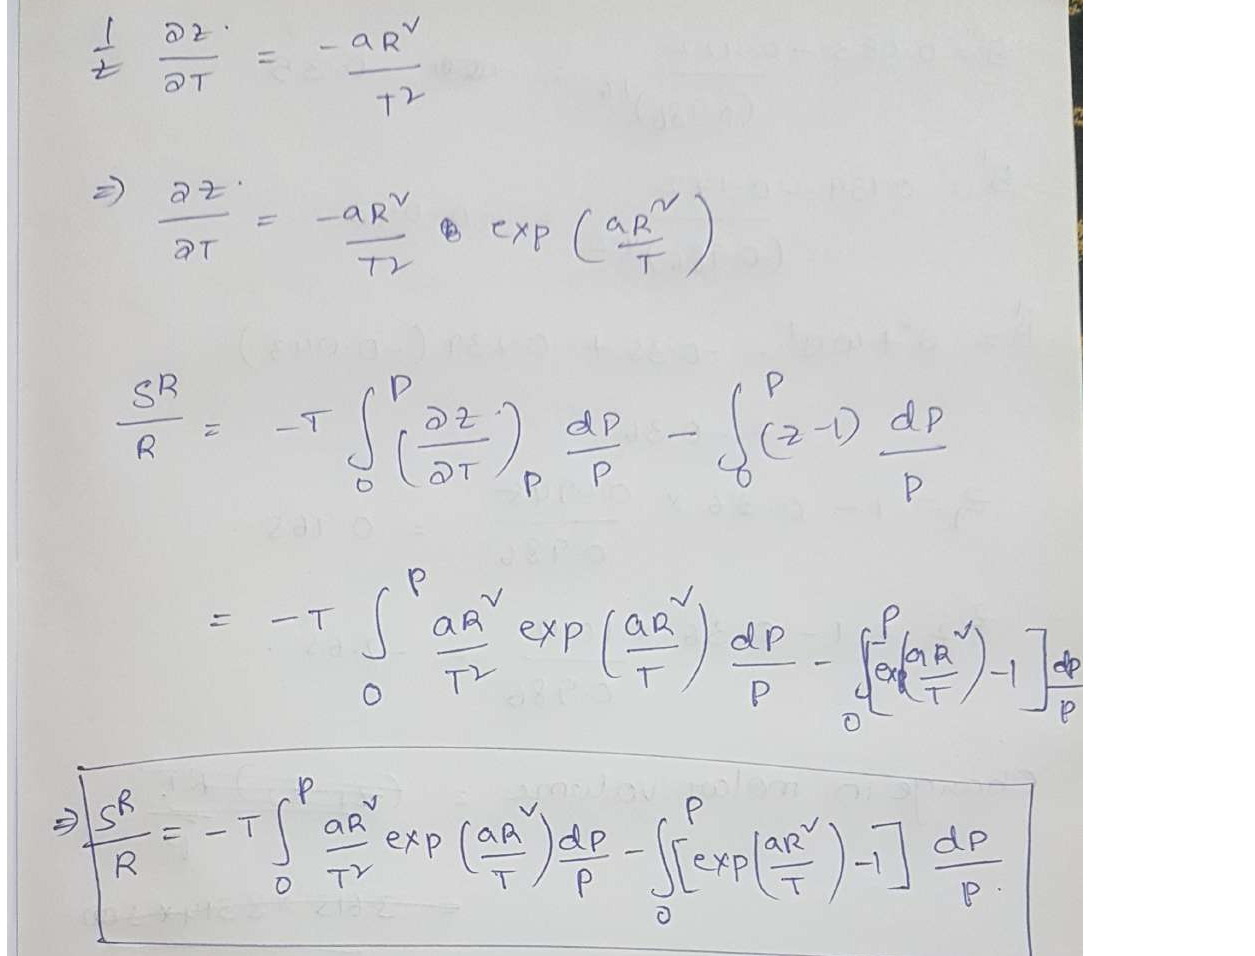 1/z ∂z/∂T = -aR²/T²
⇒ ∂z/∂T = -aR²/T² exp(aR²/T)
S^R/R = -T ∫₀^P (∂z/∂T)_P dP/P - ∫₀^P (z-1) dP/P
= -T ∫₀^P aR²/T² exp(aR²/T) dP/P - ∫₀^P [exp(aR²/T)-1] dP/P
⇒ S^R/R = -T ∫₀^P aR²/T² exp(aR²/T) dP/P - ∫₀^P [exp(aR²/T)-1] dP/P.